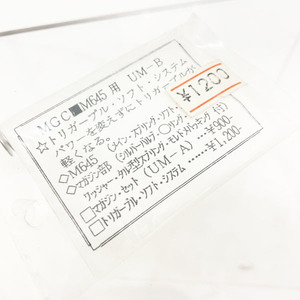 MGC■M645用 UM-B
¥1200
☆トリガープル・ソフト・システム
パワーを変えずにトリガープルが
軽くなる。
◇M645 (メイン・スプリング・ソフト
◇マガジン部 (シルバーバルブ・〇リング・
ワッシャー・タル型スプリング・モレドメパーキング (付)
□マガジン・セット (UM-A) ¥900-
□トリガープル・ソフト・システム ¥1,200-